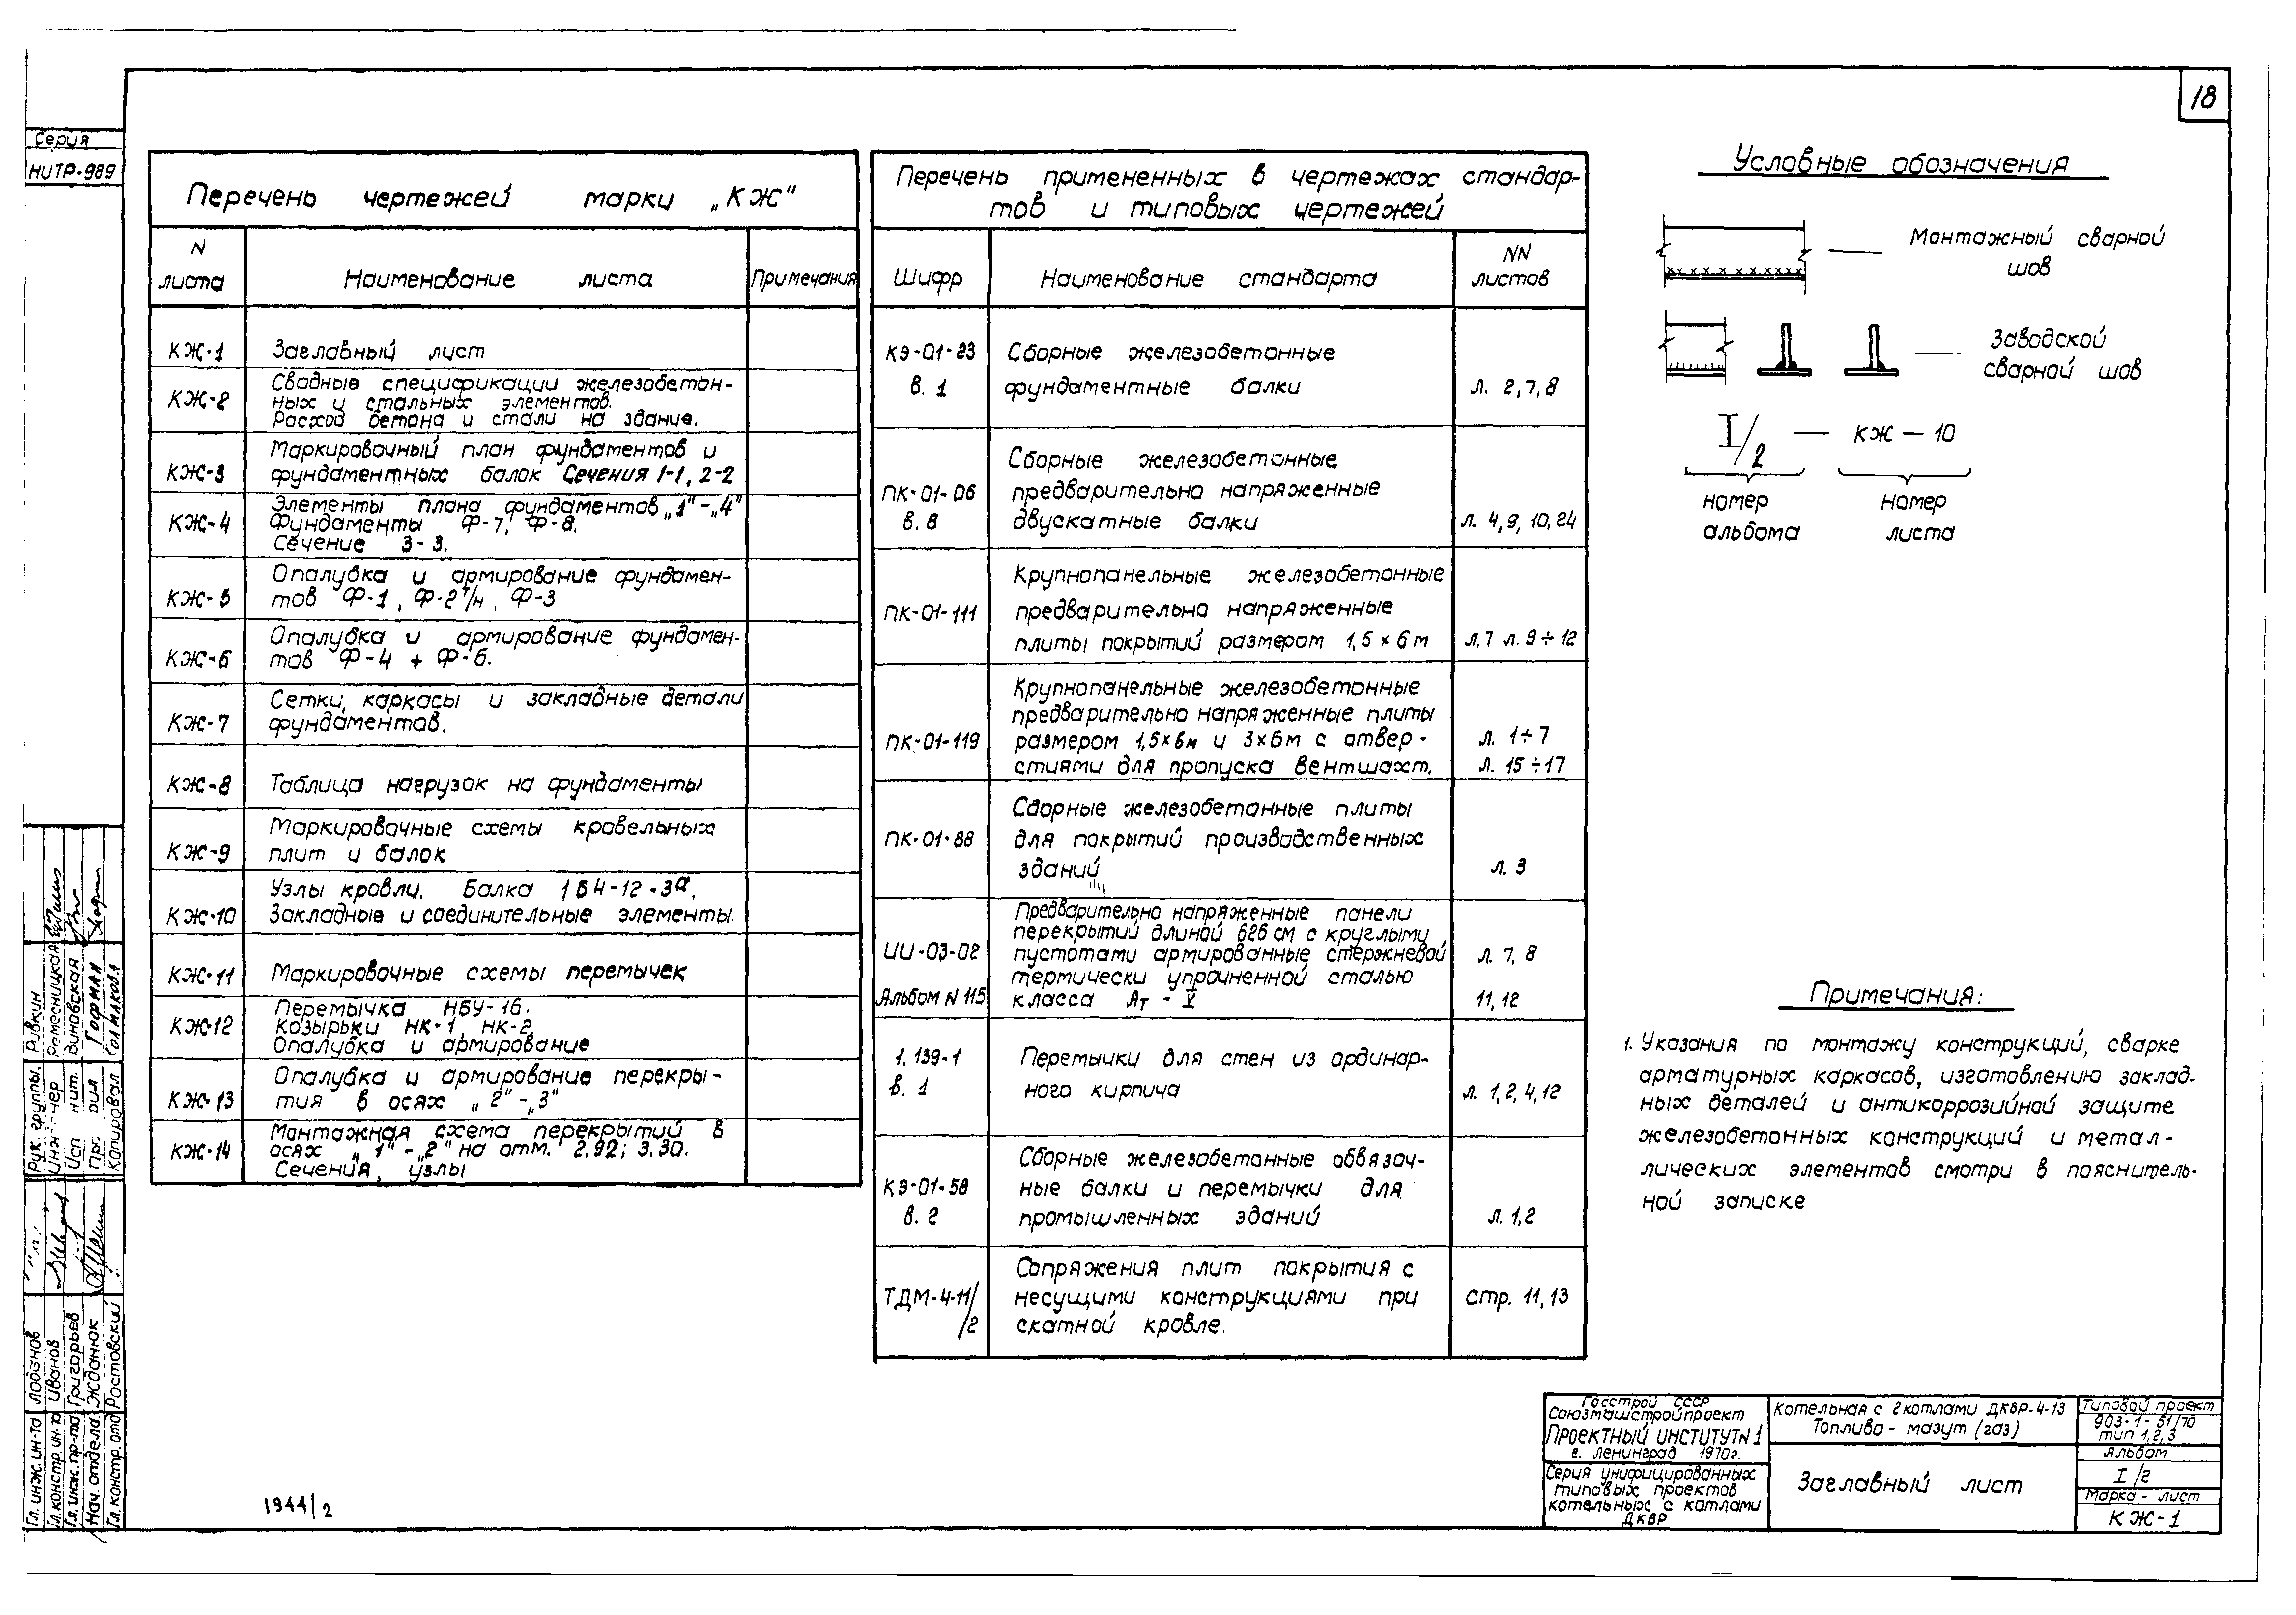 18
Серия
НИТР-989
Перечень чертежей марки „КЖ"
N листа
Наименование листа
Примечания
КЖ-1
Заглавный лист
КЖ-2
Сводные спецификации железобетон-
ных и стальных элементов.
Расход бетона и стали на здание.
КЖ-3
Маркировочный план фундаментов и
фундаментных балок Сечения 1-1, 2-2
КЖ-4
Элементы плана фундаментов „1"-„4"
Фундаменты Ф-7, Ф-8.
Сечение 3-3.
КЖ-5
Опалубка и армирование фундамен-
тов Ф-1, Ф-2т/н, Ф-3
КЖ-6
Опалубка и армирование фундамен-
тов Ф-4 + Ф-6.
КЖ-7
Сетки, каркасы и закладные детали
фундаментов.
КЖ-8
Таблица нагрузок на фундаменты
КЖ-9
Маркировочные схемы кровельных
плит и балок
КЖ-10
Узлы кровли. Балка 1Б4-12-3а.
Закладные и соединительные элементы.
КЖ-11
Маркировочные схемы перемычек
КЖ-12
Перемычка НБУ-16.
Козырьки НК-1, НК-2,
Опалубка и армирование
КЖ-13
Опалубка и армирование перекры-
тия в осях „2"-„3"
КЖ-14
Монтажная схема перекрытий в
осях „1"-„2" на отм. 2.92; 3.30.
Сечения, узлы
Перечень примененных в чертежах стандар-
тов и типовых чертежей
Шифр
Наименование стандарта
NN
листов
КЭ-01-23
в. 1
Сборные железобетонные
фундаментные балки
л. 2,7,8
ПК-01-06
в. 8
Сборные железобетонные
предварительно напряженные
двускатные балки
л. 4, 9, 10, 24
ПК-01-111
Крупнопанельные железобетонные
предварительно напряженные
плиты покрытий размером 1,5 × 6 м
л.7 л. 9÷12
ПК-01-119
Крупнопанельные железобетонные
предварительно напряженные плиты
размером 1,5×6м и 3×6м с отвер-
стиями для пропуска вентшахт.
л. 1÷7
л. 15÷17
ПК-01-88
Сборные железобетонные плиты
для покрытий производственных
зданий
л. 3
ИИ-03-02
Альбом N 115
Предварительно напряженные панели
перекрытий длиной 626 см с круглыми
пустотами армированные стержневой
термически упрочненной сталью
класса Ат - V
л. 7, 8
11, 12
1.139-1
в. 1
Перемычки для стен из ординар-
ного кирпича
л. 1, 2, 4, 12
КЭ-01-58
в. 2
Сборные железобетонные обвязоч-
ные балки и перемычки для
промышленных зданий
л. 1,2
ТДМ-4-11/
/2
Сопряжения плит покрытия с
несущими конструкциями при
скатной кровле.
стр. 11, 13
Условные обозначения
Монтажный сварной
шов
Заводской
сварной шов
I/2 — КЖ — 10
номер
альбома
номер
листа
Примечания:
1. Указания по монтажу конструкций, сварке
арматурных каркасов, изготовлению заклад-
ных деталей и антикоррозийной защите
железобетонных конструкций и метал-
лических элементов смотри в пояснитель-
ной записке
Госстрой СССР
Союзмашстройпроект
Проектный институт N1
г. Ленинград 1970г.
Серия унифицированных
типовых проектов
котельных с котлами
ДКВР
Котельная с 2 котлами ДКВР-4-13
Топливо - мазут (газ)
Заглавный лист
Типовой проект
903-1-51/70
тип 1,2,3
Альбом
I/2
Марка - лист
КЖ-1
1944/2
Рук. группы. Ривкин
Ремесницкая
Виновская
Гофман
Копировал Колмакова
Гл. инж. ин-та Лобанов
Гл. констр. ин-та Иванов
Гл. инж. пр-та Григорьев
Нач. отдела Жданюк
Гл. констр. отд Ростовский